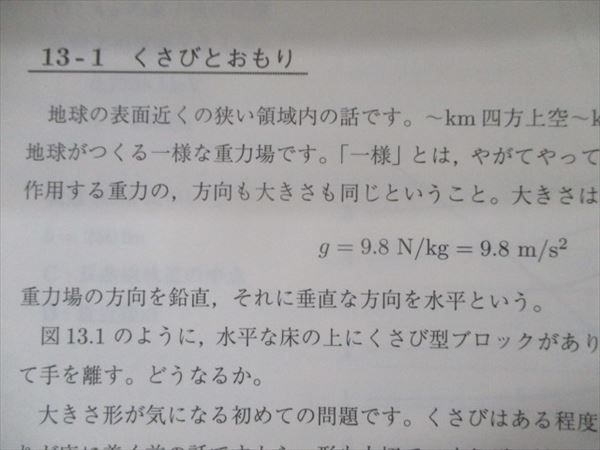 13-1 くさびとおもり
地球の表面近くの狭い領域内の話です。〜km 四方上空〜k
地球がつくる一様な重力場です。「一様」とは，やがてやって
作用する重力の，方向も大きさも同じということ。大きさは
g = 9.8 N/kg = 9.8 m/s²
重力場の方向を鉛直，それに垂直な方向を水平という。
図 13.1 のように，水平な床の上にくさび型ブロックがあり
て手を離す。どうなるか。
大きさ形が気になる初めての問題です。くさびはある程度